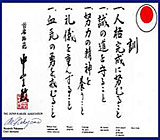 訓
一人格完成に努むること
一誠の道を守ること
一努力の精神を養うこと
一礼儀を重んずること
一血気の勇を戒むること
首席師範
中山正敏
THE JAPAN KARATE ASSOCIATION